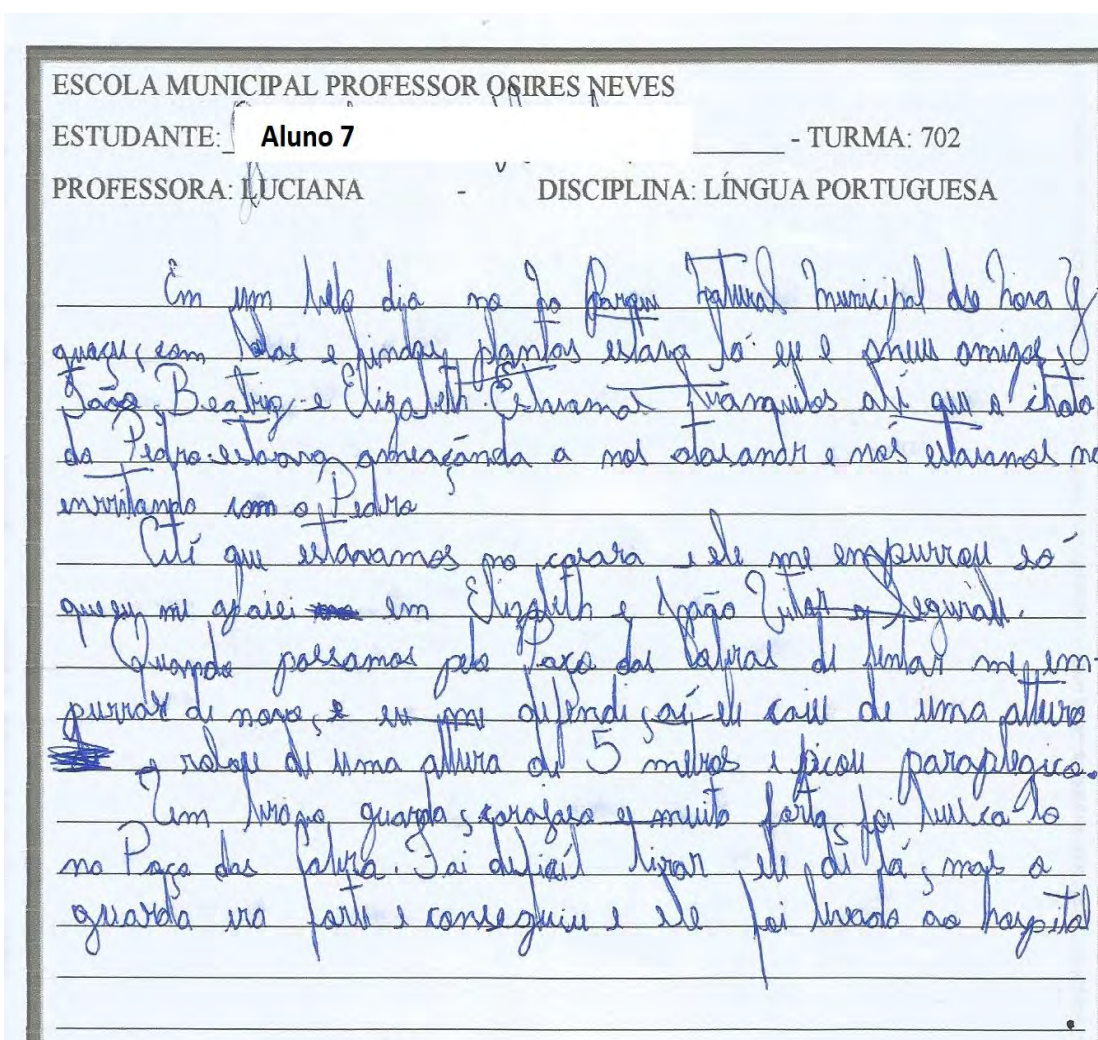 ESCOLA MUNICIPAL PROFESSOR OSIRES NEVES
ESTUDANTE: Aluno 7 - TURMA: 702
PROFESSORA: LUCIANA - DISCIPLINA: LÍNGUA PORTUGUESA
Em um belo dia no Parque Natural Municipal de Nova
com belas e lindas plantas estava lá eu e meus amigos,
Beatriz e Elizabeth. Estavamos tranquilos até que o chato
do Pedro estava a nos e nós estavamos
com o Pedro
Até que estavamos no e ele me empurrou só
que eu me apoiei em Elizabeth e João Vitor e
Quando passamos pelo Poço das Cobras me em-
purrar de novo, e eu me defendi, aí ele caiu de uma altura
e rolou de uma altura de 5 metros e ficou paraplegico.
Um guarda, e muito forte, foi busca-lo
no Poço das . Foi tirar ele de lá, mas o
guarda era forte e conseguiu e ele foi levado ao hospital